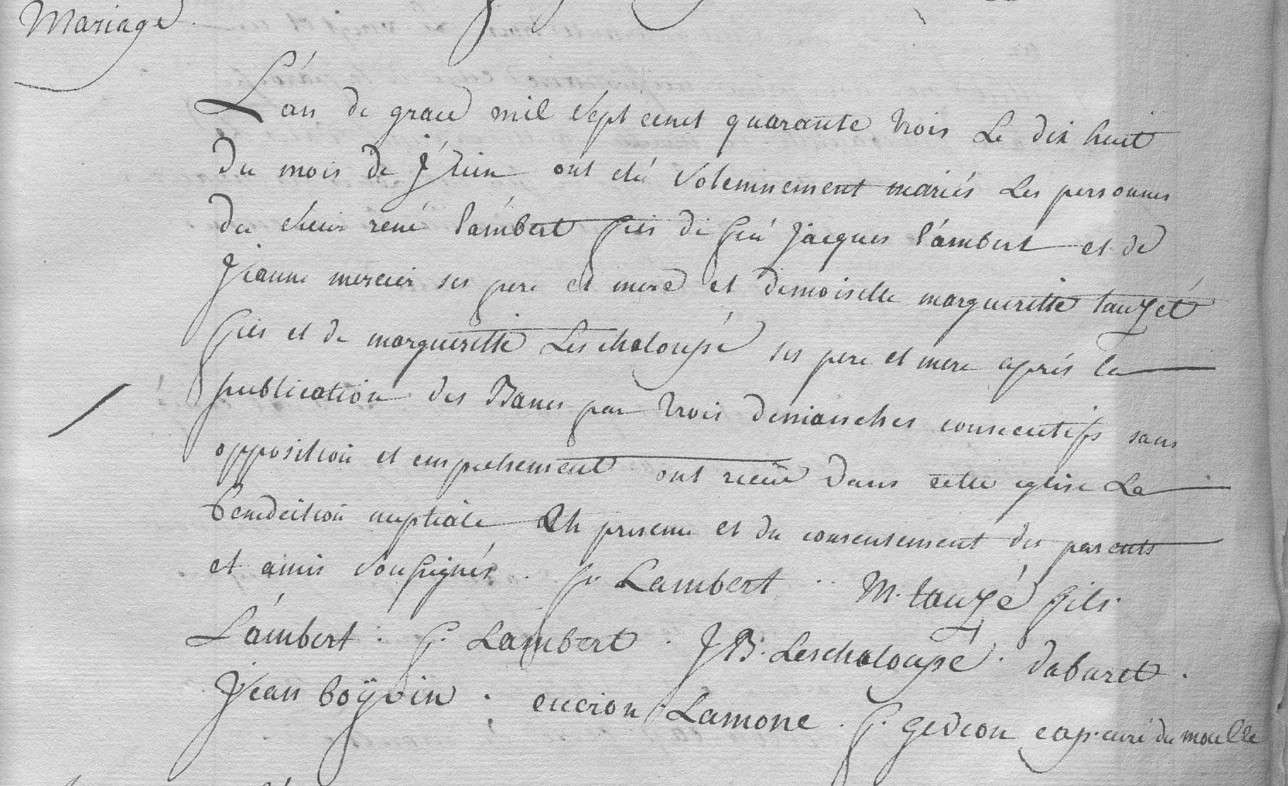 Mariage
L'an de grace mil sept cent quarante trois le dix huit
du mois de Juin ont eté solemnement mariés les personnes
du sieur rené lámbert fils de feu Jacques lámbert et de
Jeanne mercier ses pere et mere et demoiselle margueritte tauzet
et de margueritte Leschaloupé ses pere et mere aprés la
publication des Bancs par trois dimanches consecutifs sans
opposition et empechement ont recû dans cette eglise La
benediction nuptiale En presence et du consentement des parents
et amis soussignés. Lambert. M. tauzé fils.
Lámbert. f. Lambert. J B. Leschaloupé. dabaret.
Jean boÿvin. Lamone. f. gedeon cap. curé du moulle